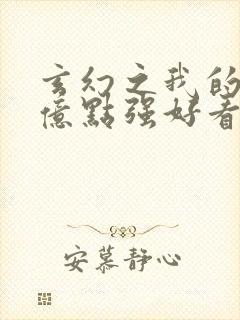 玄幻之我的
億點强好看
安慕静心